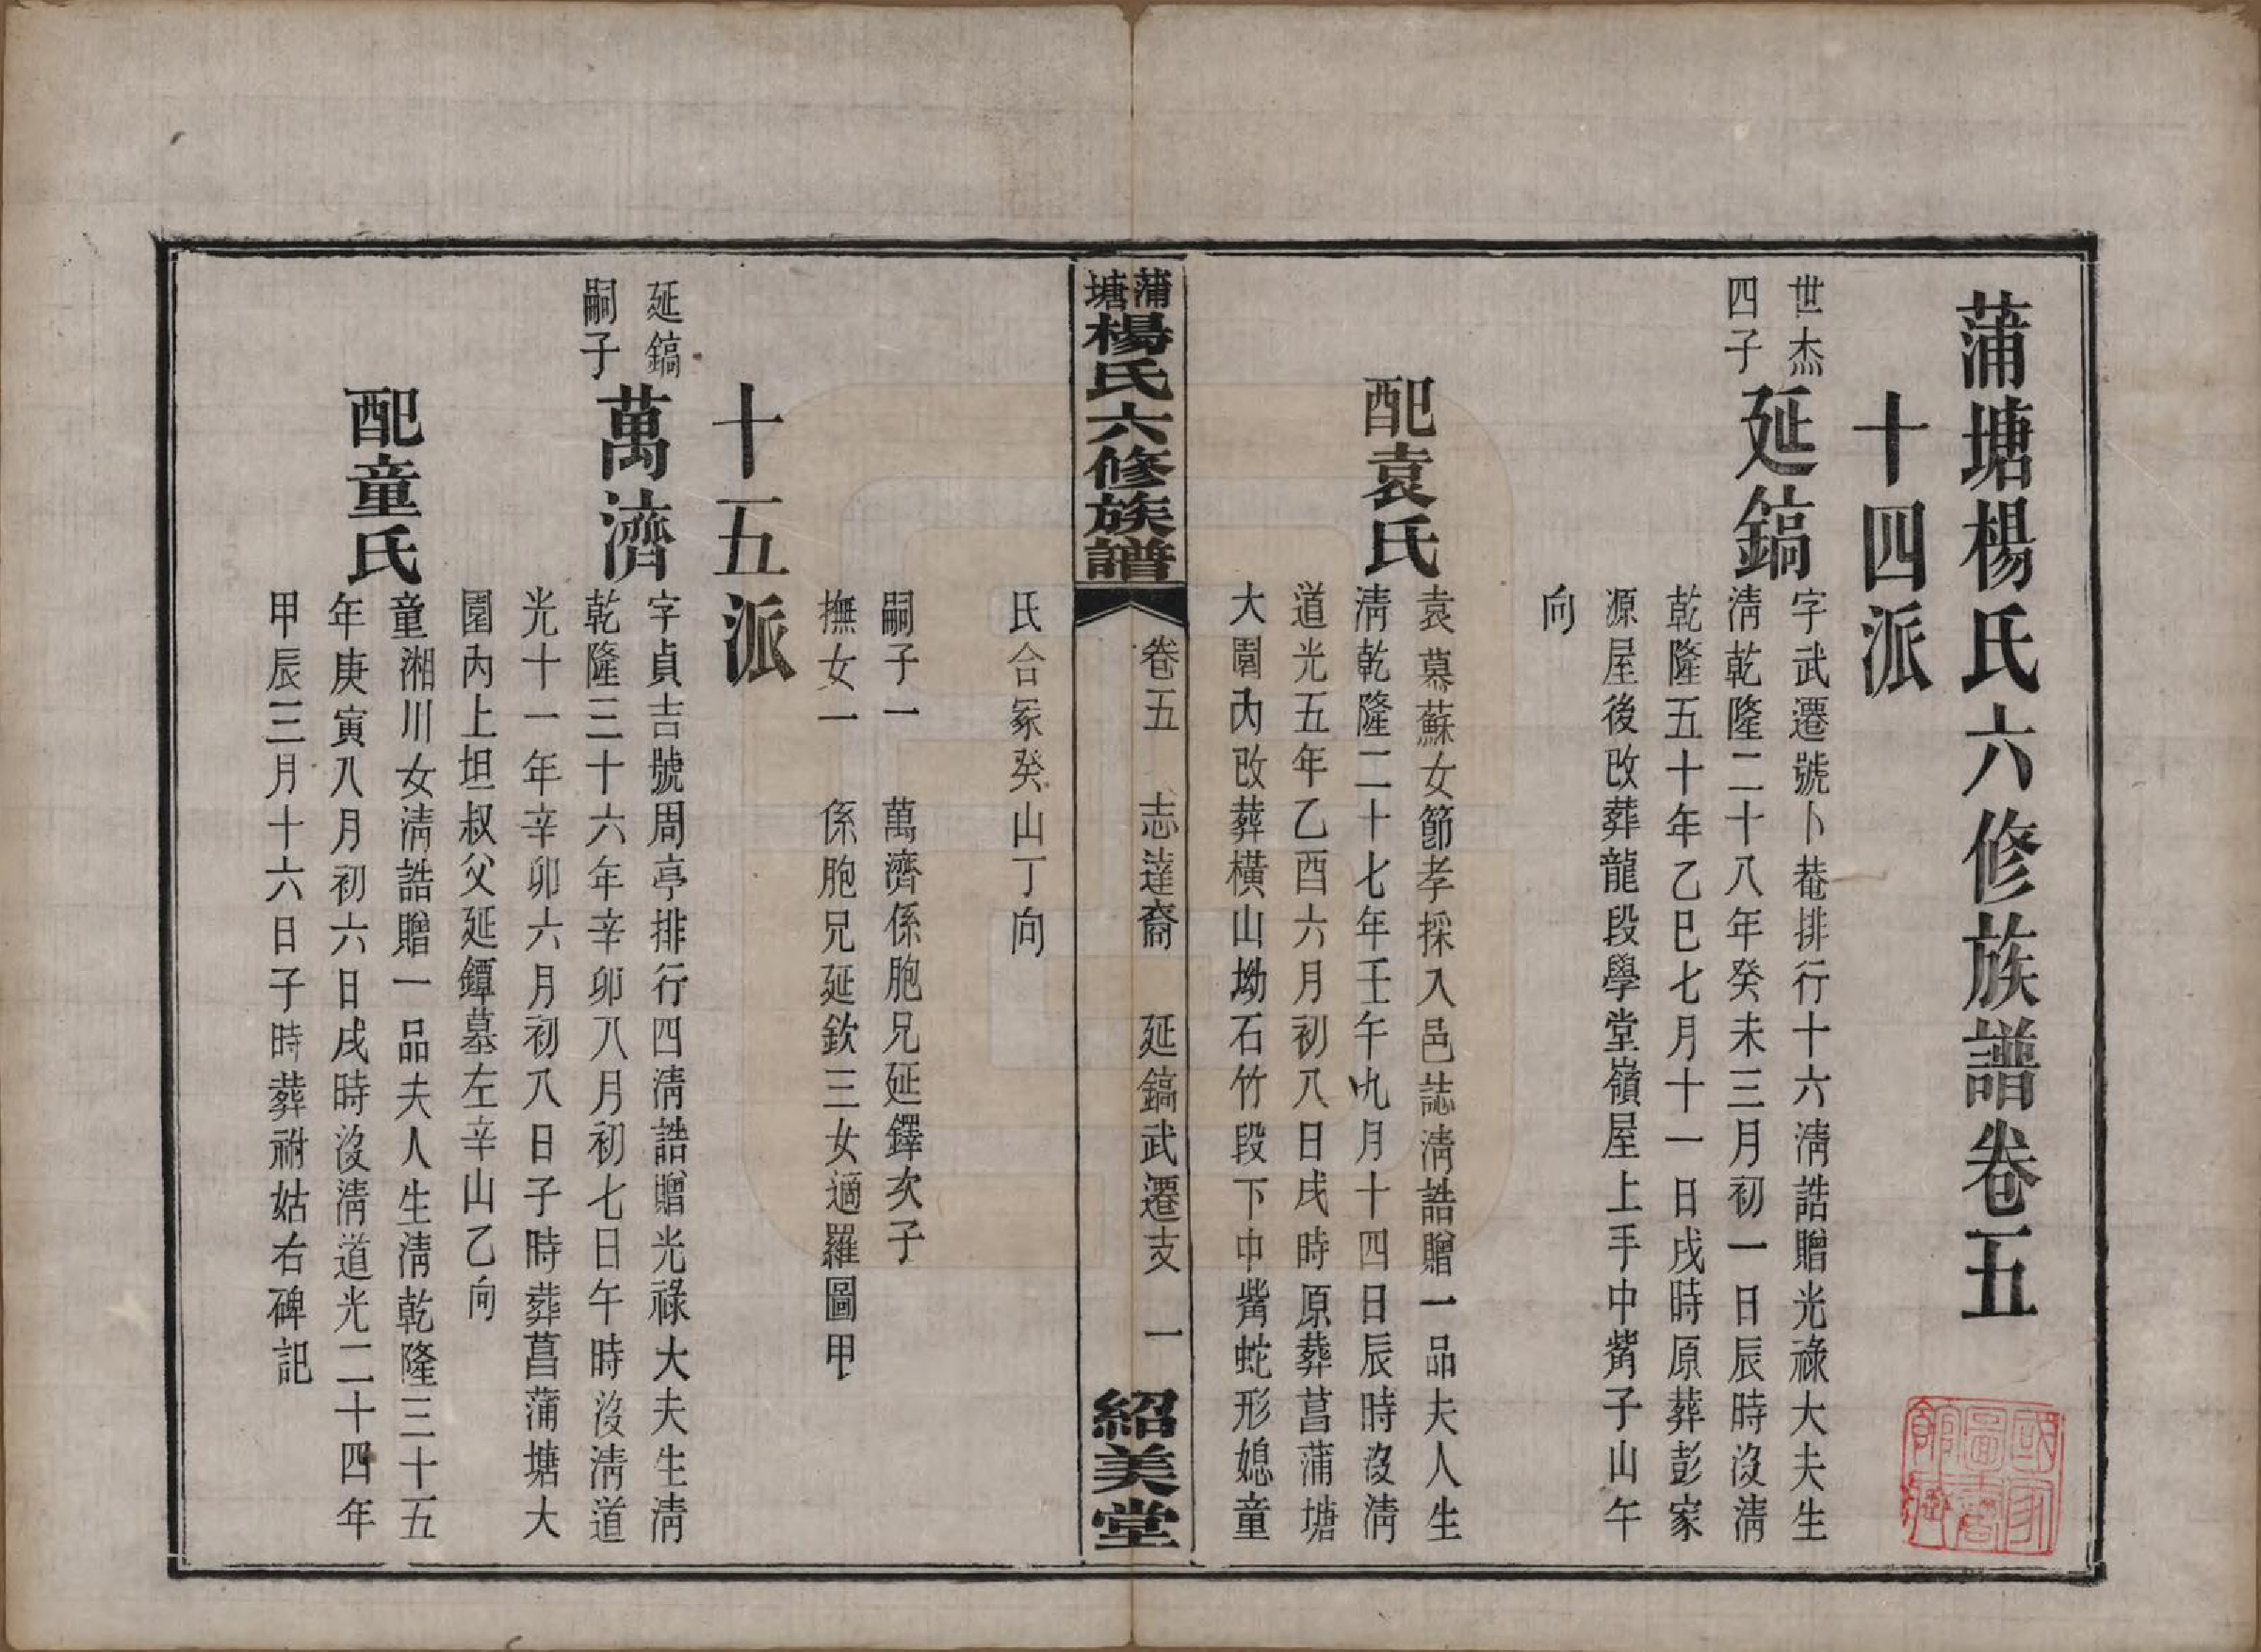 蒲塘楊氏六修族譜卷五
十四派
世杰
四子
延鎬
字武遷號卜菴排行十六淸誥贈光祿大夫生
淸乾隆二十八年癸未三月初一日辰時沒淸
乾隆五十年乙巳七月十一日戌時原葬彭家
源屋後改葬龍段學堂嶺屋上手中觜子山午
向
配袁氏
袁慕蘇女節孝採入邑誌淸誥贈一品夫人生
淸乾隆二十七年壬午九月十四日辰時沒淸
道光五年乙酉六月初八日戌時原葬菖蒲塘
大園內改葬橫山坳石竹段下中觜蛇形媳童
蒲塘楊氏六修族譜
卷五 志達裔 延鎬武遷支 一
紹美堂
氏合冢癸山丁向
嗣子一 萬濟係胞兄延鐸次子
撫女一 係胞兄延欽三女適羅圖甲
十五派
延鎬
嗣子
萬濟
字貞吉號周亭排行四淸誥贈光祿大夫生淸
乾隆三十六年辛卯八月初七日午時沒淸道
光十一年辛卯六月初八日子時葬菖蒲塘大
園內上坦叔父延鐔墓左辛山乙向
配童氏
童湘川女淸誥贈一品夫人生淸乾隆三十五
年庚寅八月初六日戌時沒淸道光二十四年
甲辰三月十六日子時葬祔姑右碑記